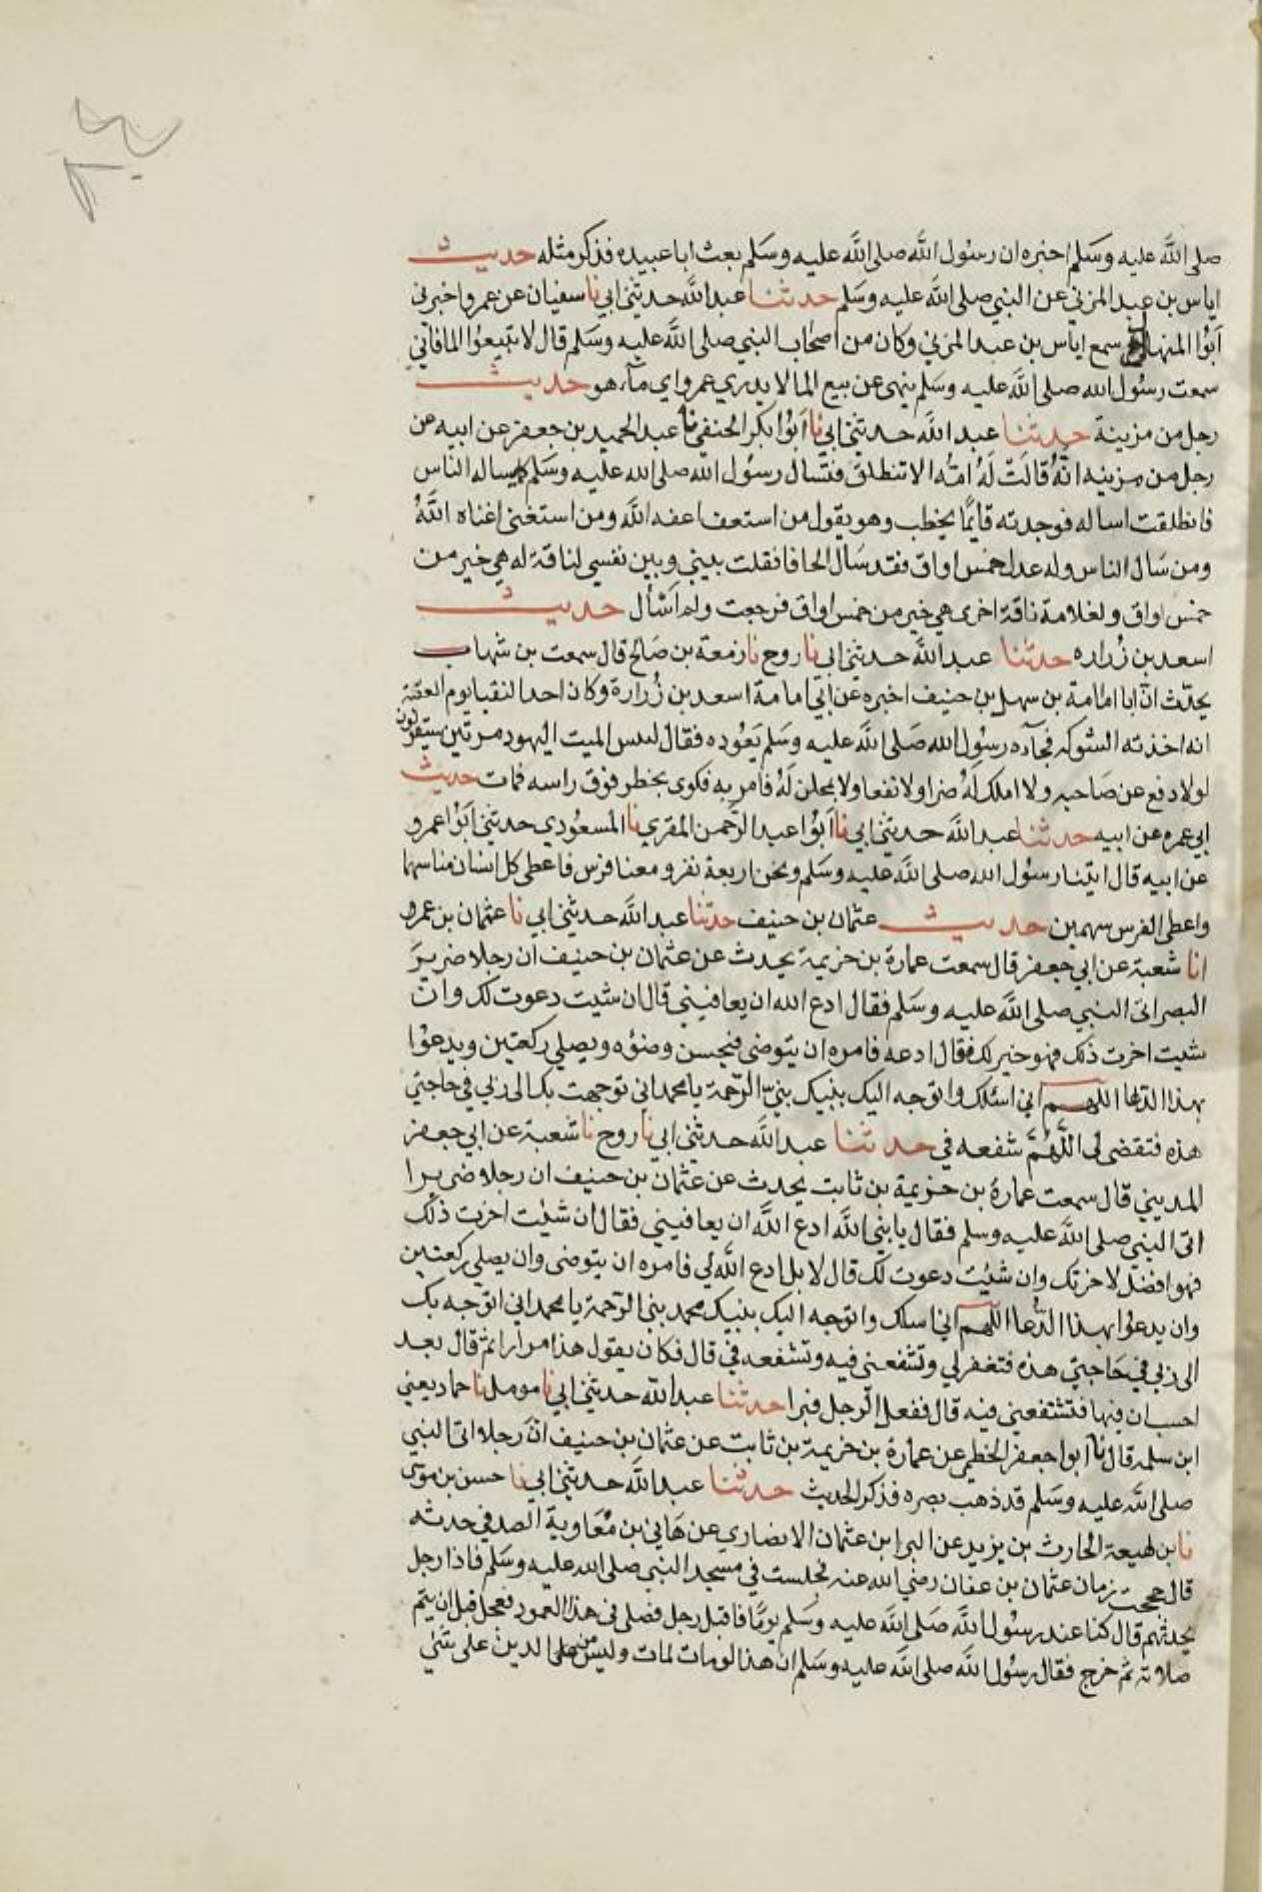 صلى الله عليه وسلم اخبره ان رسول الله صلى الله عليه وسلم بعث ابا عبيده فذكر مثله حديث
اياس بن عبد المزني عن النبي صلى الله عليه وسلم حدثنا عبد الله حدثني ابي نا سفيان عن عمرو اخبرني
ابوا المنهال سمع اياس بن عبد المزني وكان من اصحاب النبي صلى الله عليه وسلم قال لا تبيعوا الما فاني
سمعت رسول الله صلى الله عليه وسلم ينهى عن بيع الما لا يدري عمرو اي مآء هو حديث
رجل من مزينة حدثنا عبد الله حدثني ابي نا ابوا بكر الحنفي نا عبد الحميد بن جعفر عن ابيه عن
رجل من مزينه انه قالت له امه الا تنطلق فتسال رسول الله صلى الله عليه وسلم كما يساله الناس
فانطلقت اساله فوجدته قايما يخطب وهو يقول من استعف اعفه الله ومن استغنى اغناه الله
ومن سال الناس وله عدل خمس اواق فقد سال الحافا فقلت بيني وبين نفسي لناقة له هي خير من
خمس اواق ولغلامه ناقة اخرى هي خير من خمس اواق فرجعت ولم اسأل حديث
اسعد بن زراره حدثنا عبد الله حدثني ابي نا روح نا زمعة بن صالح قال سمعت بن شهاب
يحدث ان ابا امامة بن سهل بن حنيف اخبره عن ابي امامة اسعد بن زرارة وكان احد النقبا يوم العقبة
انه اخذته الشوكه فجآءه رسول الله صلى الله عليه وسلم يعوده فقال لبس الميت اليهود مرتين سيقولون
لولا دفع عن صاحبه ولا املك له ضرا ولا نفعا ولا بمحلن له فامر به فكوى بخطر فوق راسه فمات حديث
ابي عمره عن ابيه حدثنا عبد الله حدثني ابي نا ابوا عبد الرحمن المقري نا المسعودي حدثني ابوا عمرو
عن ابيه قال اتينا رسول الله صلى الله عليه وسلم ونحن اربعة نفر ومعنا فرس فاعطى كل انسان منا سهما
واعطى الفرس سهمين حديث عثمان بن حنيف حدثنا عبد الله حدثني ابي نا عثمان بن عمرو
انا شعبة عن ابي جعفر قال سمعت عمارة بن خزيمة يحدث عن عثمان بن حنيف ان رجلا ضرير
البصر اتى النبي صلى الله عليه وسلم فقال ادع الله ان يعافيني قال ان شيت دعوت لك وان
شيت اخرت ذلك فهو خير لك فقال ادعه فامره ان يتوضى فيحسن وضوه ويصلي ركعتين ويدعوا
بهذا الدعا اللهم اني اسئلك واتوجه اليك بنبيك نبي الرحمة يا محمد اني توجهت بك الى ربي في حاجتي
هذه فتقضى لي اللهم شفعه في حدثنا عبد الله حدثني ابي نا روح نا شعبة عن ابي جعفر
المديني قال سمعت عمارة بن خزيمة بن ثابت يحدث عن عثمان بن حنيف ان رجلا ضريرا
اتى النبي صلى الله عليه وسلم فقال يا نبي الله ادع الله ان يعافيني فقال ان شئت اخرت ذلك
فهو افضل لاخرتك وان شئت دعوت لك قال لا بل ادع الله لي فامره ان يتوضى وان يصلي ركعتين
وان يدعوا بهذا الدعا اللهم اني اسلك واتوجه اليك بنبيك محمد نبي الرحمة يا محمد اني اتوجه بك
الى ربي في حاجتي هذه فتغفر لي وتشفعني فيه وتشفعه في قال فكان يقول هذا مرارا ثم قال بعد
احسب ان فيها فتشتفعني فيه قال ففعل الرجل فبرا حدثنا عبد الله حدثني ابي نا مومل نا حماد يعني
ابن سلمه قال نا ابوا جعفر الخطمي عن عمارة بن خزيمة بن ثابت عن عثمان بن حنيف ان رجلا اتى النبي
صلى الله عليه وسلم قد ذهب بصره فذكر الحديث حدثنا عبد الله حدثني ابي نا حسن بن موسى
نا بن لهيعة الحارث بن يزيد عن البرا بن عثمان الانصاري عن هاني بن معاوية الصدفي حدثه
قال حججت زمان عثمان بن عفان رضي الله عنه فجلست في مسجد النبي صلى الله عليه وسلم فاذا رجل
يحدثهم قال كنا عند رسول الله صلى الله عليه وسلم يوما فاقبل رجل فصلى في هذا العمود فعجل قبل ان يتم
صلاته ثم خرج فقال رسول الله صلى الله عليه وسلم ان هذا لو مات لمات وليس من الدين على شئي